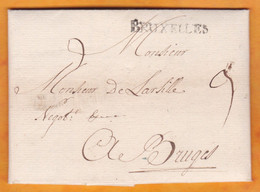 BRUXELLES
Monsieur
Monsieur De Larville
Negot:
A Bruges